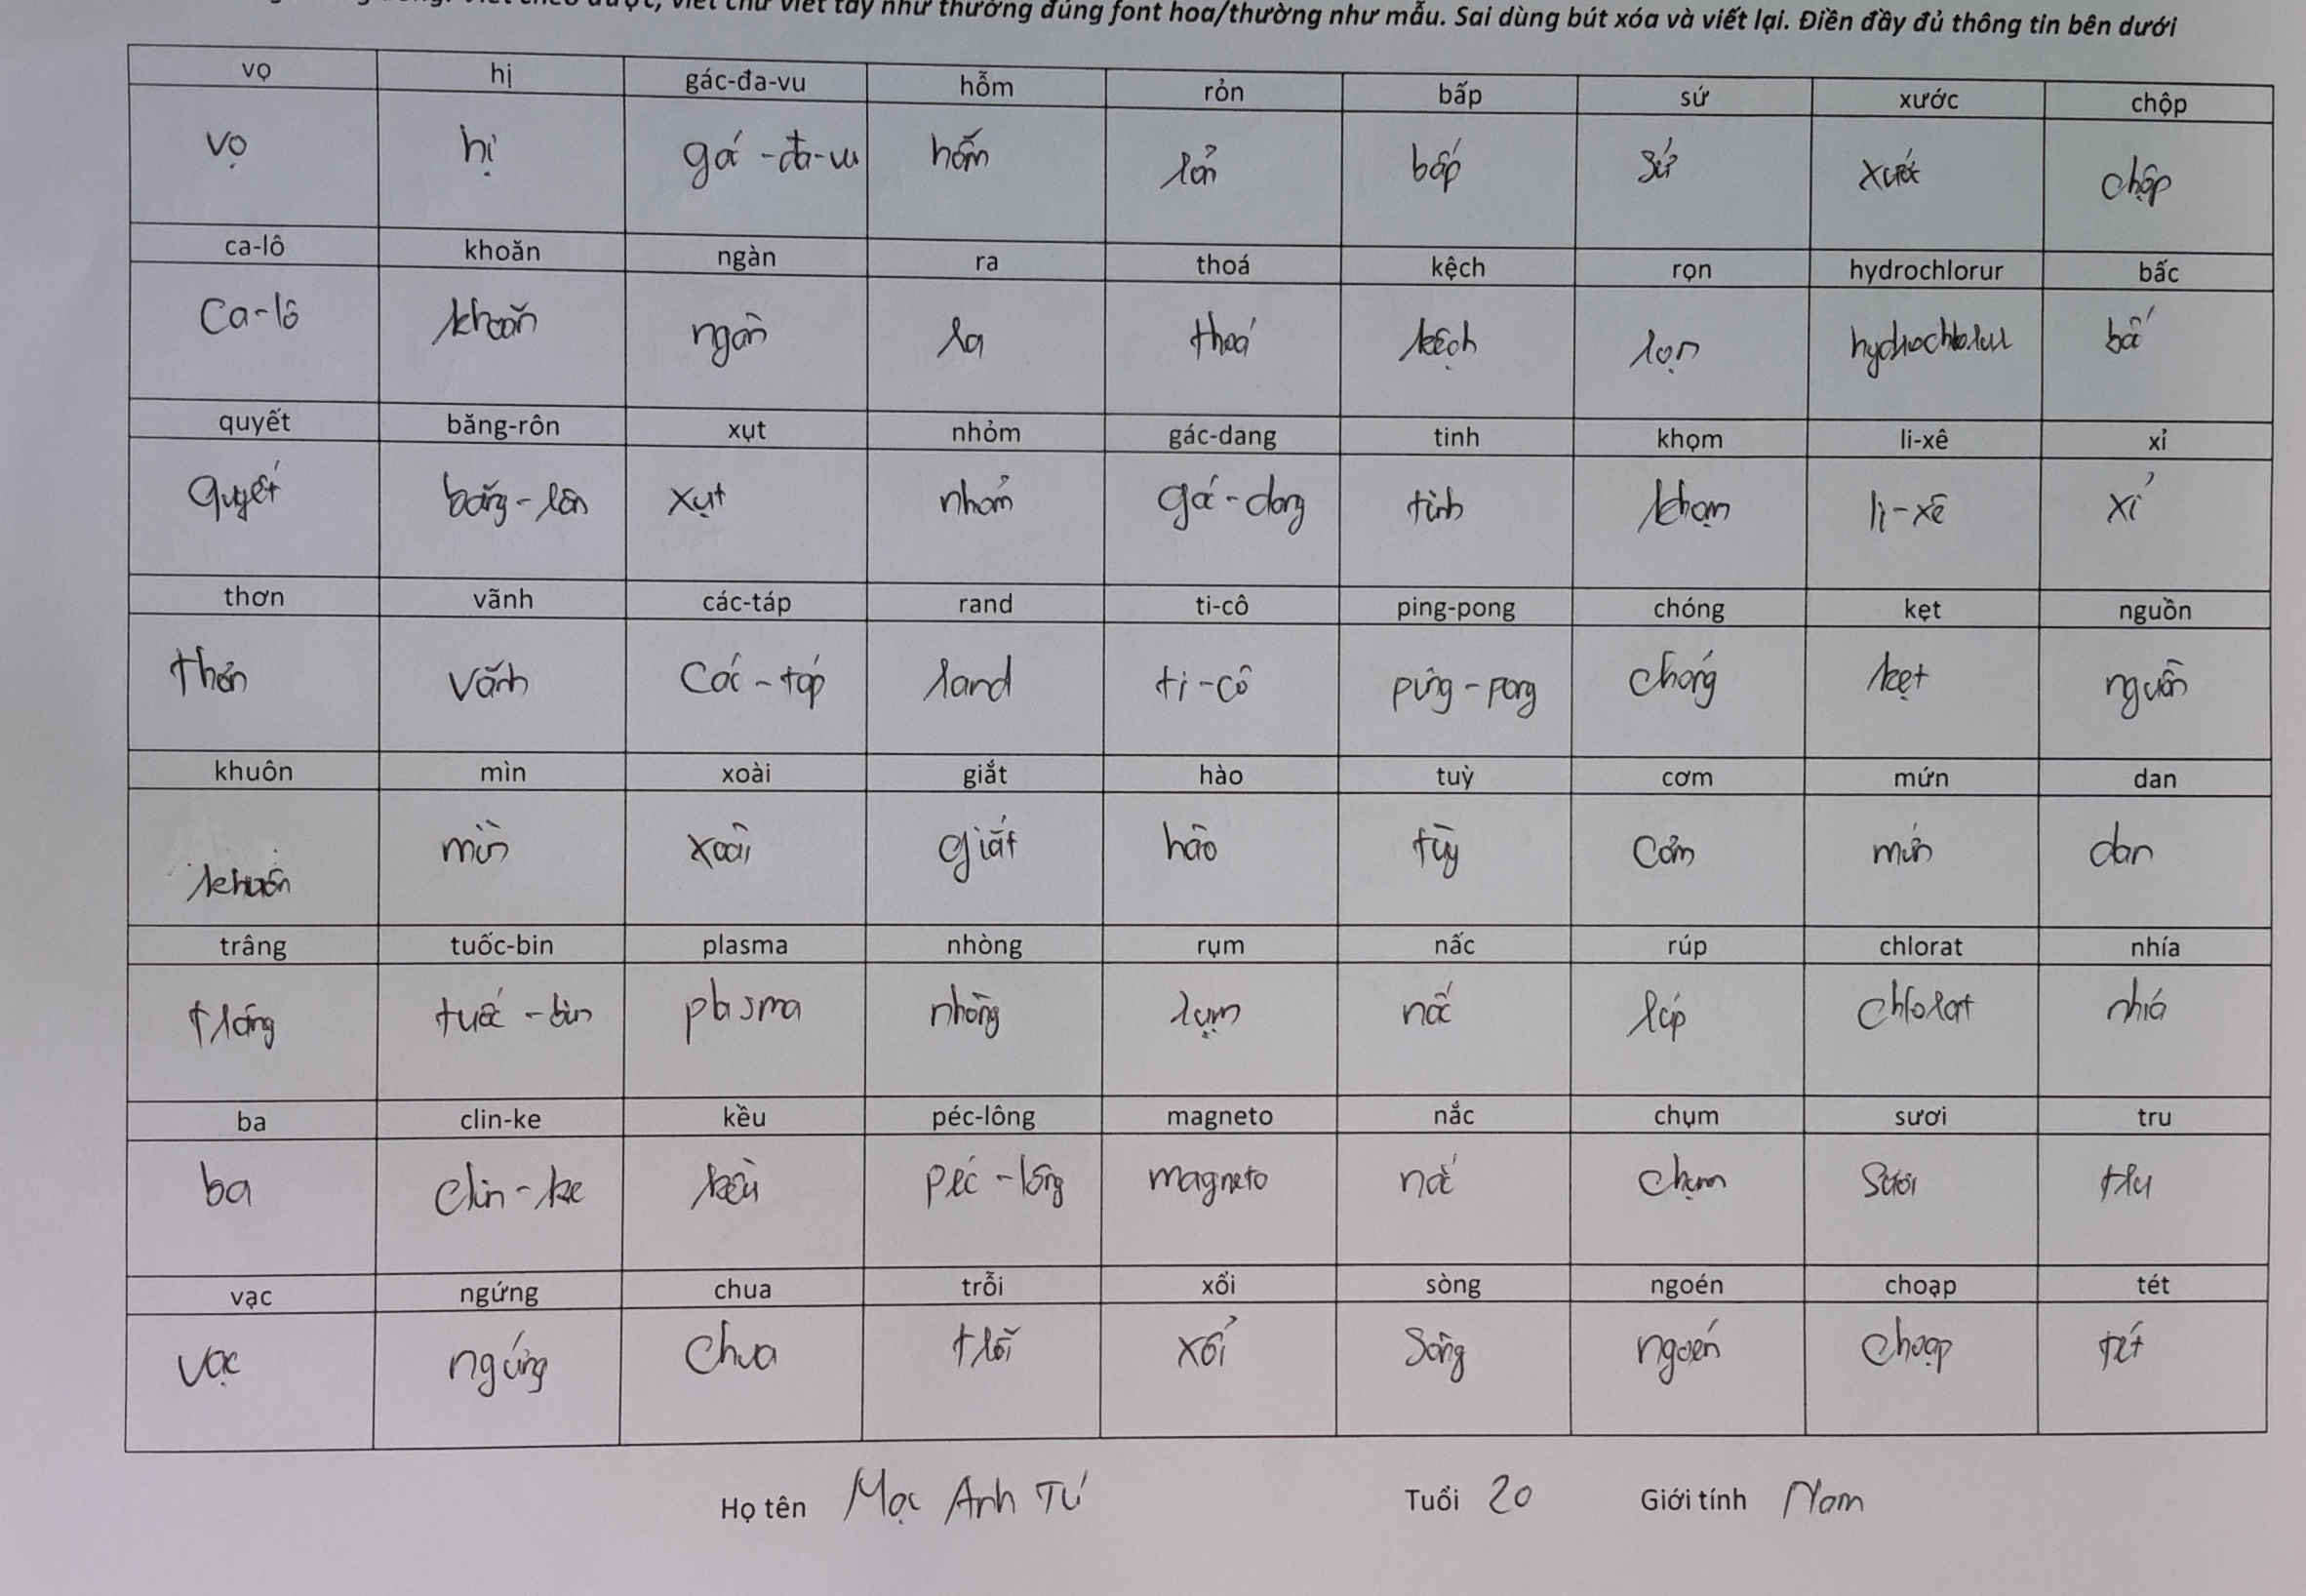 viết chữ viết tay như thường đúng font hoa/thường như mẫu. Sai dùng bút xóa và viết lại. Điền đầy đủ thông tin bên dưới
vọ hị gác-đa-vu hỗm rỏn bấp sứ xước chộp
vọ hị gác-đa-vu hỗm rỏn bấp sứ xước chộp
ca-lô khoăn ngàn ra thoá kệch rọn hydrochlorur bấc
ca-lô khoăn ngàn ra thoá kệch rọn hydrochlorur bấc
quyết băng-rôn xụt nhỏm gác-dang tinh khọm li-xê xỉ
quyết băng-rôn xụt nhỏm gác-dang tinh khọm li-xê xỉ
thơn vãnh các-táp rand ti-cô ping-pong chóng kẹt nguồn
thơn vãnh các-táp rand ti-cô ping-pong chóng kẹt nguồn
khuôn mìn xoài giắt hào tuỳ cơm mứn dan
khuôn mìn xoài giắt hào tùy cơm mứn dan
trâng tuốc-bin plasma nhòng rụm nấc rúp chlorat nhía
trâng tuốc-bin plasma nhòng rụm nấc rúp chlorat nhía
ba clin-ke kều péc-lông magneto nắc chụm sươi tru
ba clin-ke kều péc-lông magneto nắc chụm sươi tru
vạc ngứng chua trỗi xổi sòng ngoén choạp tét
vạc ngứng chua trỗi xổi sòng ngoén choạp tét
Họ tên Mạc Anh Tú Tuổi 20 Giới tính Nam